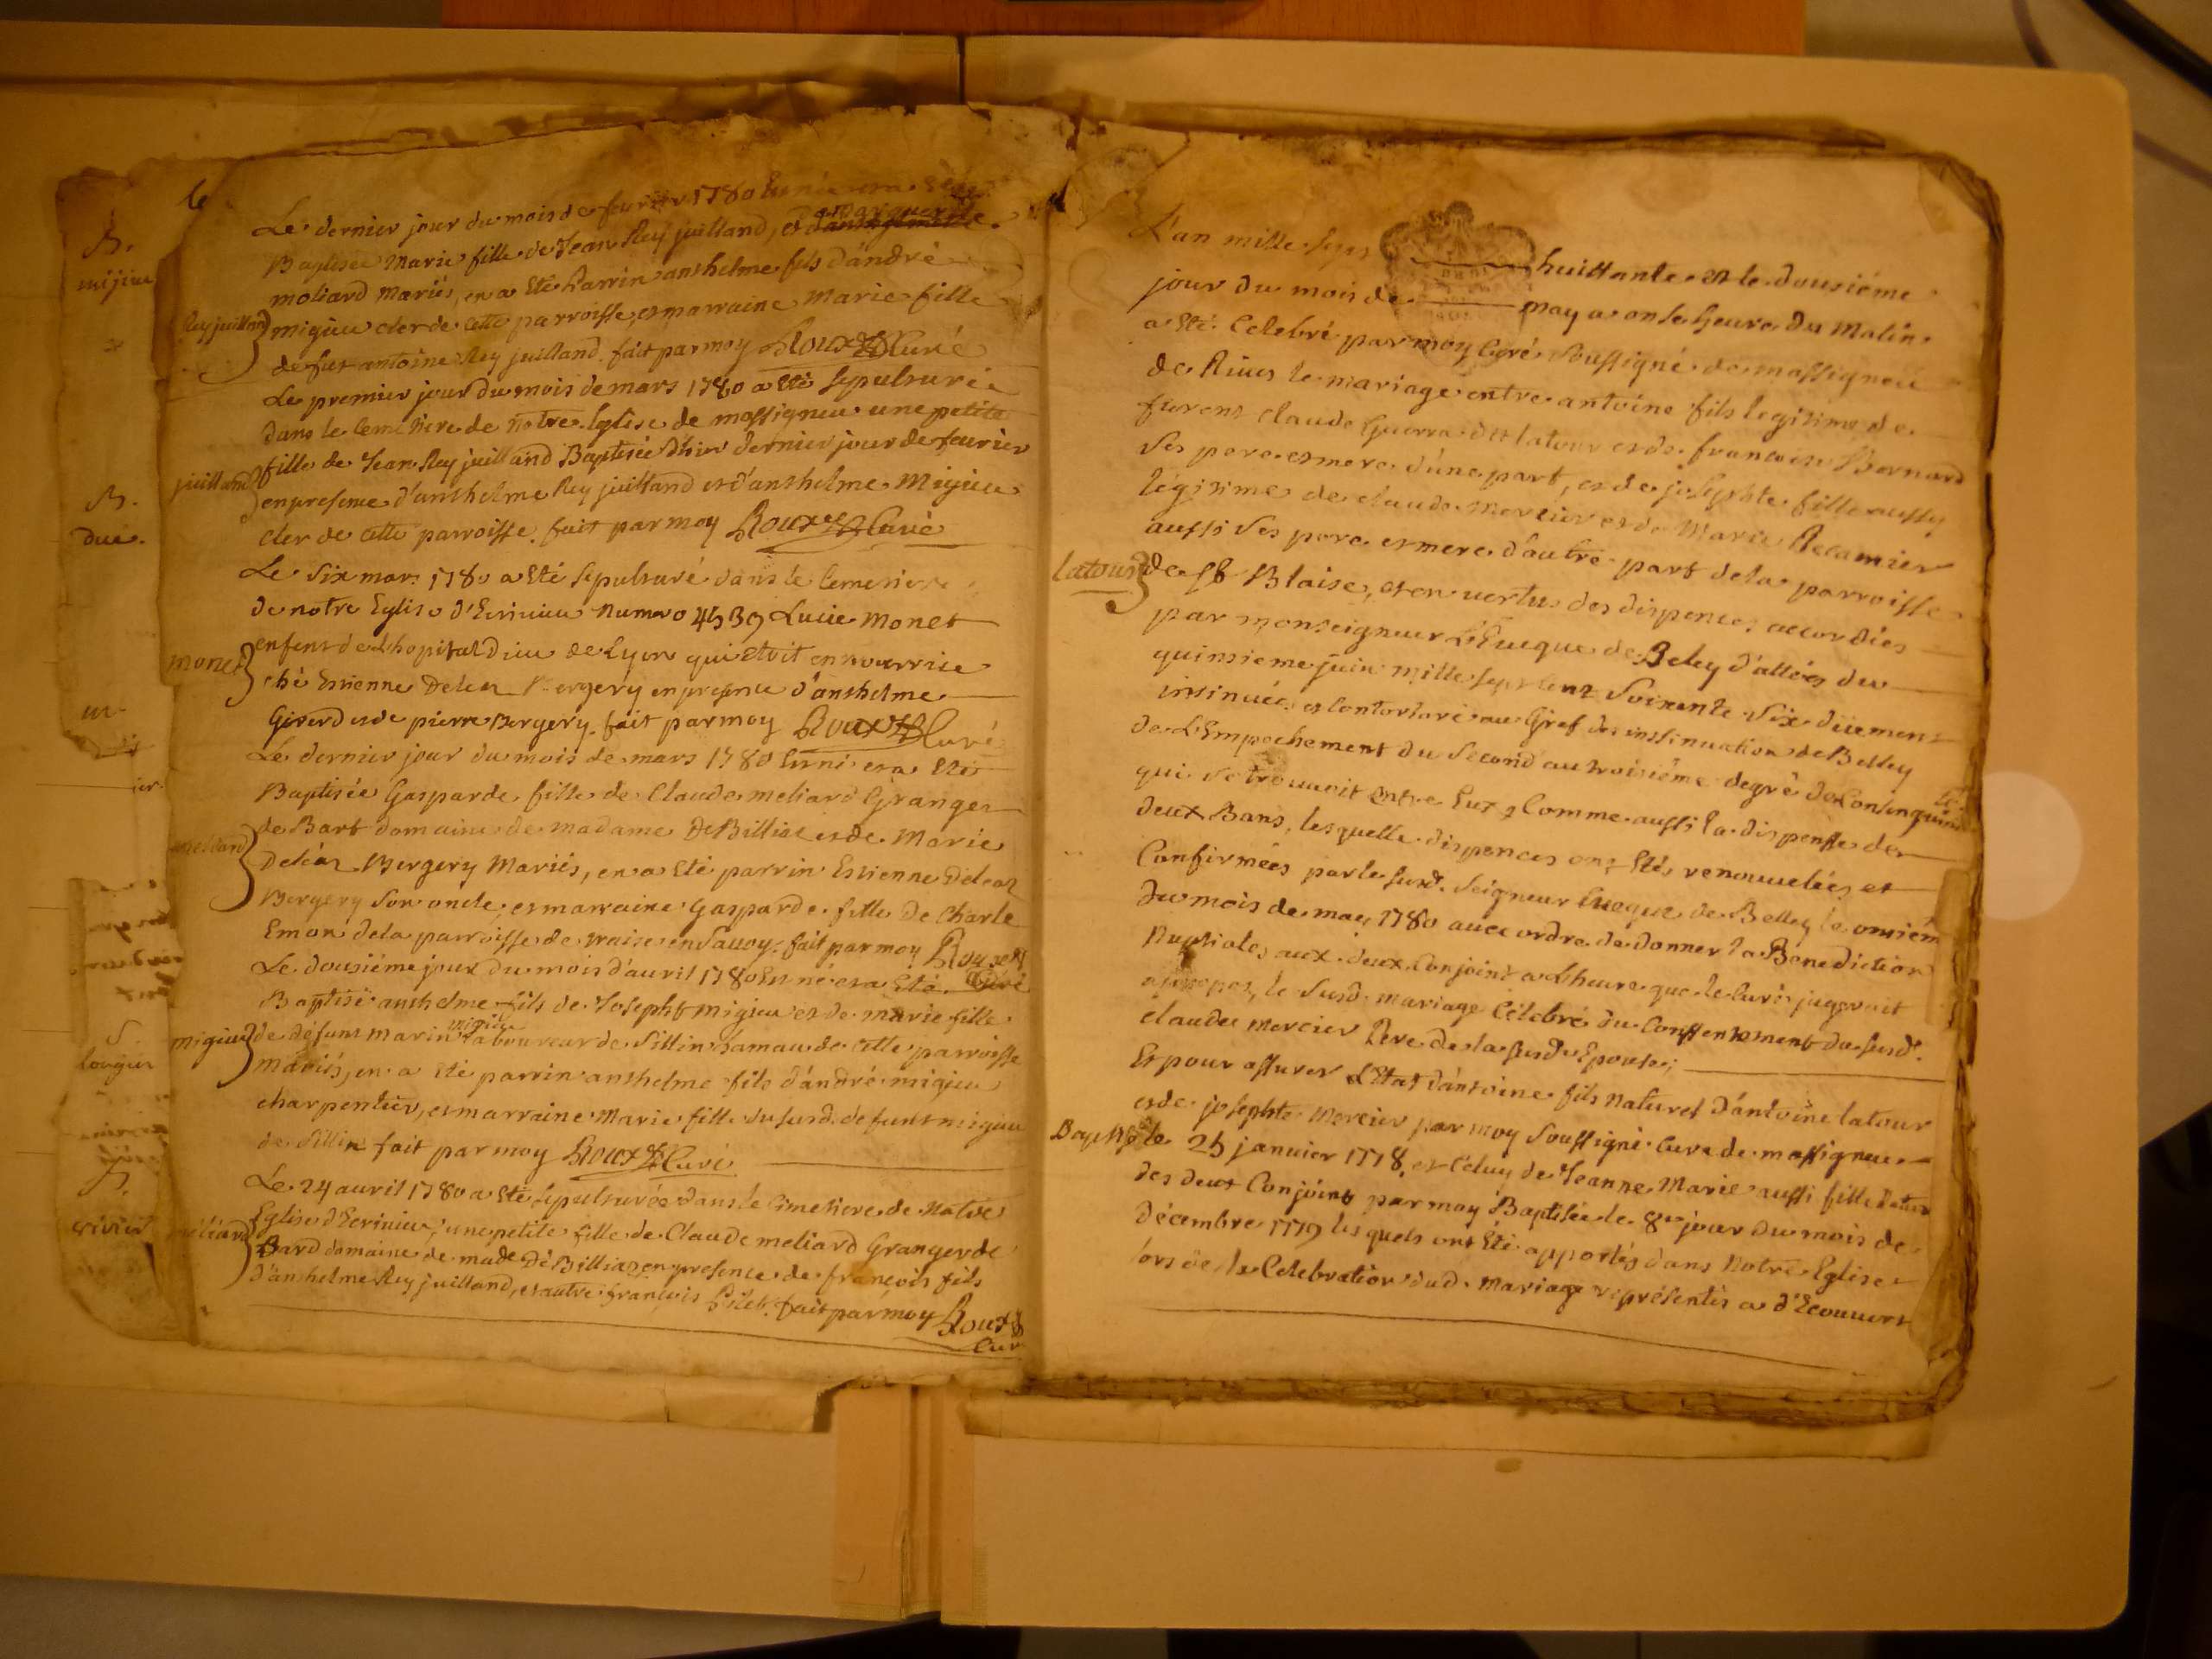 Le dernier jour du mois de feurier 1780 Est née
marguerite
Baptisée Marie fille de Jean Rey juilland, et
moliard Mariés, en a Eté Parrin anthelme fils d'andre
Rey juilland
migieu cler de cette parroisse, et marraine Marie fille
de fut antoine Rey juilland. fait par moy Roux Curé
Le premier jour du mois de mars 1780 a Eté sepulturée
dans le Cemetiere de notre Eglise de massigneu une petite
fille de Jean Rey juilland Baptisée Dhier dernier jour de feurier
juilland
en presence d'anthelme Rey juilland et d'anthelme Migieu
cler de cette parroisse. fait par moy Roux Curé
Le Six mars 1780 a Eté Sepulturé dans le Cemetiere
de notre Eglise d'Ecrivieu Numero Lucie Monet
monet
enfent de L'hopital Dieu de Lyon qui etoit en nourrice
ché Estienne Deléaz Bergery en presence d'anthelme
Girerd et de pierre Bergery. fait par moy Roux Curé
Le dernier jour du mois de mars 1780 Est né et a Eté
Baptisée Gasparde fille de Claude meliard Granger
de Bart domaine de Madame De Billiat et de Marie
meliard
Deléaz Bergery Mariés, en a Eté parrin Estienne Deleaz
Bergery Son oncle, et marraine Gasparde fille de Charle
Emon de la parroisse de en Sauoy. fait par moy Roux
Curé
Le dousiéme jour du mois d'auril 1780 Est né et a Eté
Baptisé anthelme fils de Joseph migieu et de marie fille
migieu
de défunt marin migieu laboureur de Sillin hamau de cette parroisse
mariés, en a Eté parrin anthelme fils d'andré migieu
charpentier, et marraine Marie fille du susd. defunt migieu
de Sillin fait par moy Roux Curé
Le 24 auril 1780 a Eté Sepulturée dans le Cimetiere de Notre
Eglise d'Ecrivieu, une petite fille de Claude meliard Granger de
méliard
Bard domaine de made De Billiaz en presence de françois fils
d'anthelme Rey juilland, et autre françois fait par moy Roux
Cur
L'an mille sept huittante et le dousiéme
jour du mois de may a onse heure du Matin
a Eté Celebré par moy Curé Soussigné de massigneu
de Riues le mariage entre antoine fils legitime de
furent Claude Guerra dit latour et de francoise Bernard
Ses pere et mere d'une part, et de josephte fille aussy
légitime de claude Mercier et de Marie Recamier
aussi Ses pere et mere d'autre part de la parroisse
latour
de St Blaise, et en vertu des dispences accordées
par monseigneur L'Eueque de Beley d'attées du
quinsieme juin mille sept cent Soixente Six düement
insinuées et Controrlaré au Gref des insinuation de Belley
de L'Empechement du Second au troisiéme degré de Consenguini
té
qui se trouuoit entre Eux, Comme aussi la dispensse de
deux Bans, lesquelle dispences ont Etés renouuelées et
Confirmées par le susd. Seigneur Eueque de Belley le onsiém
du mois de may 1780 auec ordre de donner la Benediction
Nuptiales aux deux Conjoint a L'heure que le Curé jugerait
apropos, le Susd. mariage Célebré du Conssentement du susd.
claude mercier Pere de la susd. Epouse;
Et pour assurer L'Etat d'antoine fils Naturel d'antoine latour
et de josephte Mercier par moy Soussigné Curé de massigneu
Baptisé le 25 janvier 1778, et Celuy de Jeanne Marie aussi fille
des deux Conjoint par moy Baptisée le 8e jour du mois de
Décembre 1779 les quels ont Eté apportés dans Notre Eglise
lors de la Celebration dud. Mariage représentés a d'Ecouuert
B.
migieu
B.
due.
longieu
rivier